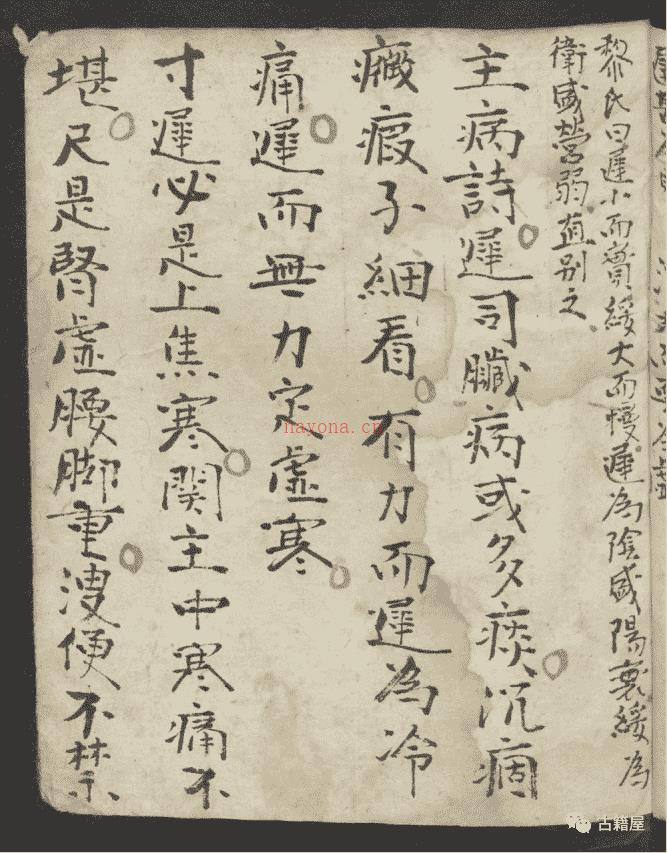 黎氏曰遲小而實緩大而慢遲為陰盛陽衰緩為
衛盛營弱宜別之
主病詩遲司臟病或多痰沉痼
癥瘕子細看有力而遲為冷
痛遲而無力定虛寒
寸遲必是上焦寒関主中寒痛不
堪尺是腎虛腰脚重溲便不禁
nayona.cn
古籍屋